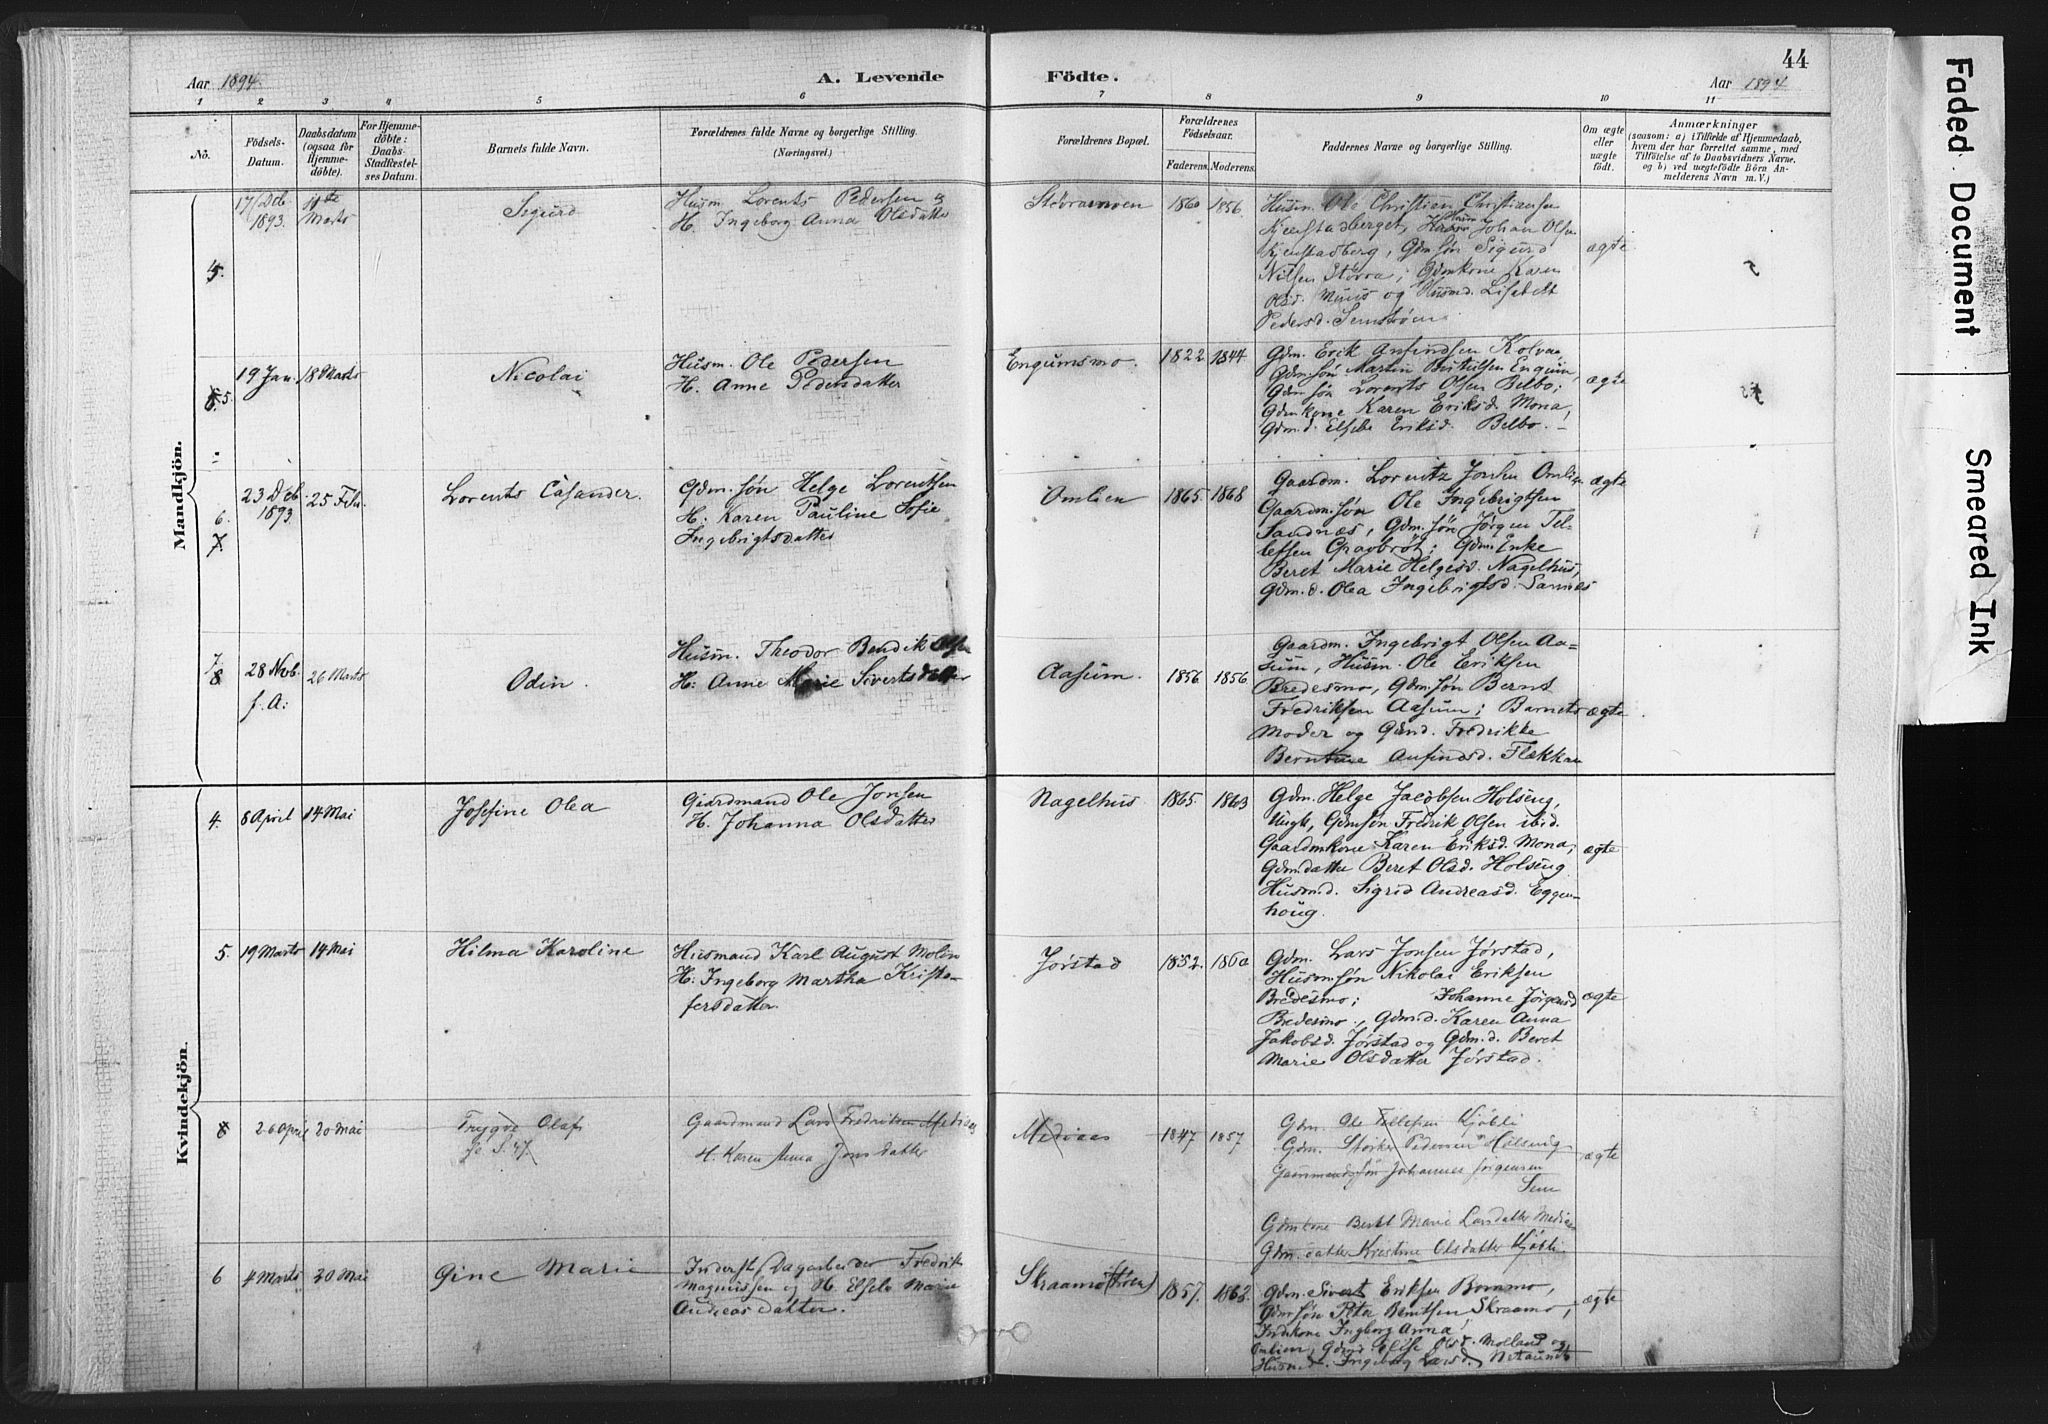 Aar 1894
A. Levende Födte.
44
Aar 1894
1 2 3 4 5 6 7 8 9 10 11
No.
Födsels-
Datum.
Daabsdatum
(ogsaa for
Hjemme-
döbte).
For Hjemme-
döbte:
Daabs-
Stadfestel-
ses Datum.
Barnets fulde Navn.
Forældrenes fulde Navne og borgerlige Stilling.
(Næringsvei.)
Forældrenes Bopæl.
Forældrenes
Födselsaar.
Faderens. Moderens.
Faddernes Navne og borgerlige Stilling.
Om ægte
eller
uægte
født.
Anmærkninger
(saasom: a) i Tilfælde af Hjemmedaab,
hvem der har forrettet samme, med
Tilföielse af to Daabsvidners Navne.
og b) ved uægtefödte Börn An-
melderens Navn m. V.)
Mandkjön.
17/Deb
1893.
11te
Marts
Sigurd
Husm. Lorents Pedersen &
H. Ingeborg Anna Olsdatter
Storamoen
1860
1856
Husm. Ole Christian Christiansen
Kjenstadberget, Husm. Johan Olsen
Kjenstadberg, Gdm.søn Sigurd
Nilsen Storra; Gdmkone Karen
Olsd. Muus og Husmd. Lisabet
Pedersd. Semstrøm
ægte
5.
19 Jan.
18 Marts
Nicolai
Husm. Ole Pedersen
H. Anne Pedersdatter
Engumsmo.
1822
1844
Gdm. Erik Anfindsen Kolvaa,
Gdm.søn Martin Bertelsen Engum,
Gdm søn Lorents Olsen Belbo;
Gdmkone Karen Eriksd. Mona,
Gdm.d. Elsebe Eriksd. Belbo.
ægte
6.
7
23 Deb.
1893
25 Febr.
Lorents Casander.
Gdm.søn Helge Lorentsen
H. Karen Pauline Sofie
Ingebrigtsdatter
Omlien
1865
1868
Gaardm. Lorentz Jonsen Omlien
Gaardm.søn Ole Ingebrigtsen
Sandnæs, Gdm.søn Jørgen Tel-
lefsen Gravbrøt; Gdm.Enke
Beret Marie Helgesd. Nagelhus,
Gdm.d. Olea Ingebrigtsd. Sannæs
ægte
7
8
28 Nob.
f. A:
26 Marts
Odin.
Husm. Theodor Bendik Olsen
H: Anne Marie Sivertsdatter
Aasum.
1856
1856
Gaardm. Ingebrigt Olsen Aa-
sum, Husm. Ole Eriksen
Bredesmo, Gdm.søn Bernt
Fredriksen Aasum; Barnets
Moder og Gdmd. Fredrikke
Berntine Anfinnsd. Flekkan
ægte
Kvindekjön.
4.
8 April
14 Mai
Josefine Olea
Gaardmand Ole Jonsen
H. Johanna Olsdatter
Nagelhus
1865
1863
Gdm. Helge Jacobsen Holseng,
Ungk, Gdmsøn Fredrik Olsen ibid.
Gaardmkone Karen Eriksd. Mona;
Gdm.datter Beret Olsd. Holseng
Husm.d. Sigrid Andreasd. Eggen-
houg.
ægte
5.
19 Marts
14 Mai
Hilma Karoline
Husmand Karl August Molin
H. Ingeborg Martha Kristo-
fersdatter
Jørstad
1852.
1860
Gdm. Lars Jonsen Jørstad,
Husm.søn Nikolai Eriksen
Bredesmo; Johanne Jørgensd
Bredesmo., Gdm.d. Karen Anna
Jakobsd. Jørstad og Gdm.d. Beret
Marie Olsdatter Jørstad.
ægte
8
26 April
20 Mai
Trygve Olaf
se S. 47
Gaardmand Lars Fredriksen Mediaas
H. Karen Anna Jonsdatter
Mediaas
1847
1857
Gdm. Ole Tellefsen Kjøbli
Gdm. Størker Pedersen Helseng
Gaarmandssøn Johannes Jørgensen
Sem
Gdmkone Beret Marie Larsdatter Mediaas
Gdm. datter Kristine Olsdatter Kjøbli.
ægte
6
4 Marts
20 Mai
Gine Marie
Inderst/Dagarbeider Fredrik
Magnussen og H. Elsebe Marie
Andreasdatter.
Skraamo (Sven)
1857.
1863.
Gdm. Sivert Eriksen Bommo,
Gdm søn Peter Berntsen Skraamo,
Indkone Ingborg Anna
Omlien, Gdmd. Elise Olsd. Molland og
Husmd. Ingeborg Larsd.
ægte
Faded Document
Smeared Ink